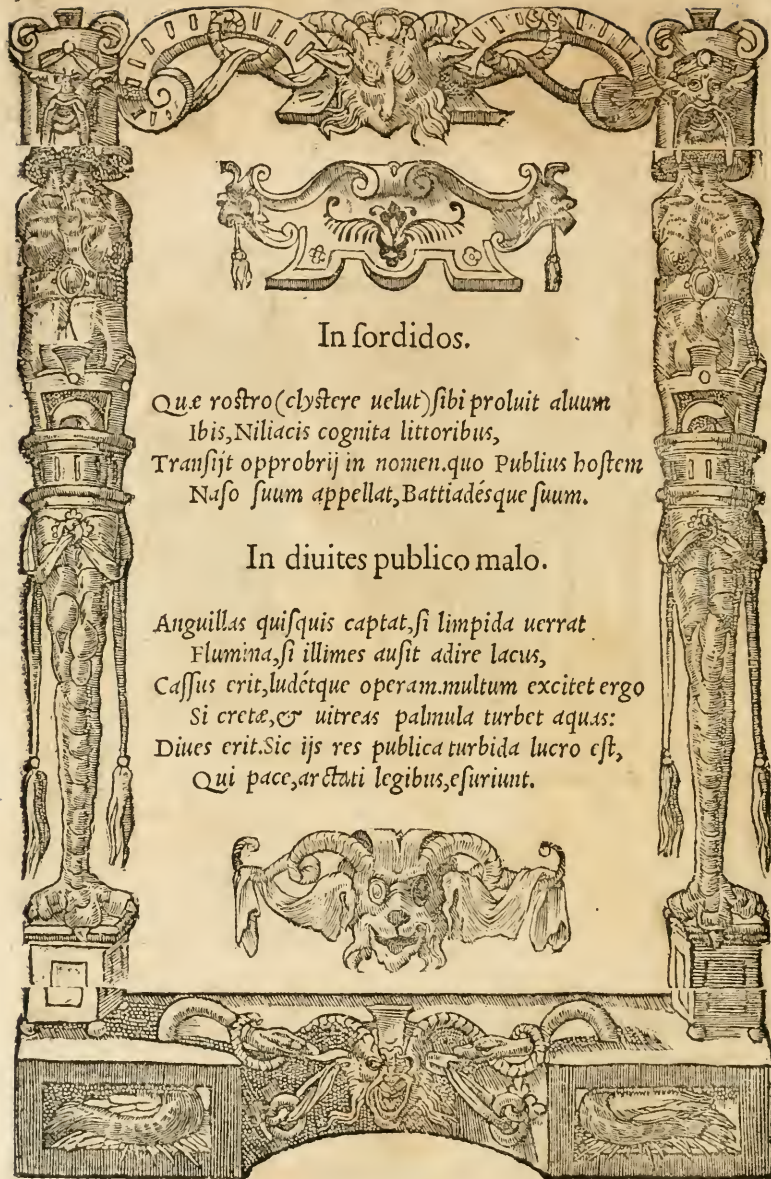 In ſordidos.
Quæ roſtro (clyſtere uelut) ſibi proluit aluum
Ibis, Niliacis cognita littoribus,
Tranſijt opprobrij in nomen. quo Publius hoſtem
Naſo ſuum appellat, Battiadésque ſuum.
In diuites publico malo.
Anguillas quiſquis captat, ſi limpida uerrat
Flumina, ſi illimes auſit adire lacus,
Caſſus erit, ludétque operam. multum excitet ergo
Si cretæ, & uitreas palmula turbet aquas:
Diues erit. Sic ijs res publica turbida lucro eſt,
Qui pace, arctati legibus, eſuriunt.